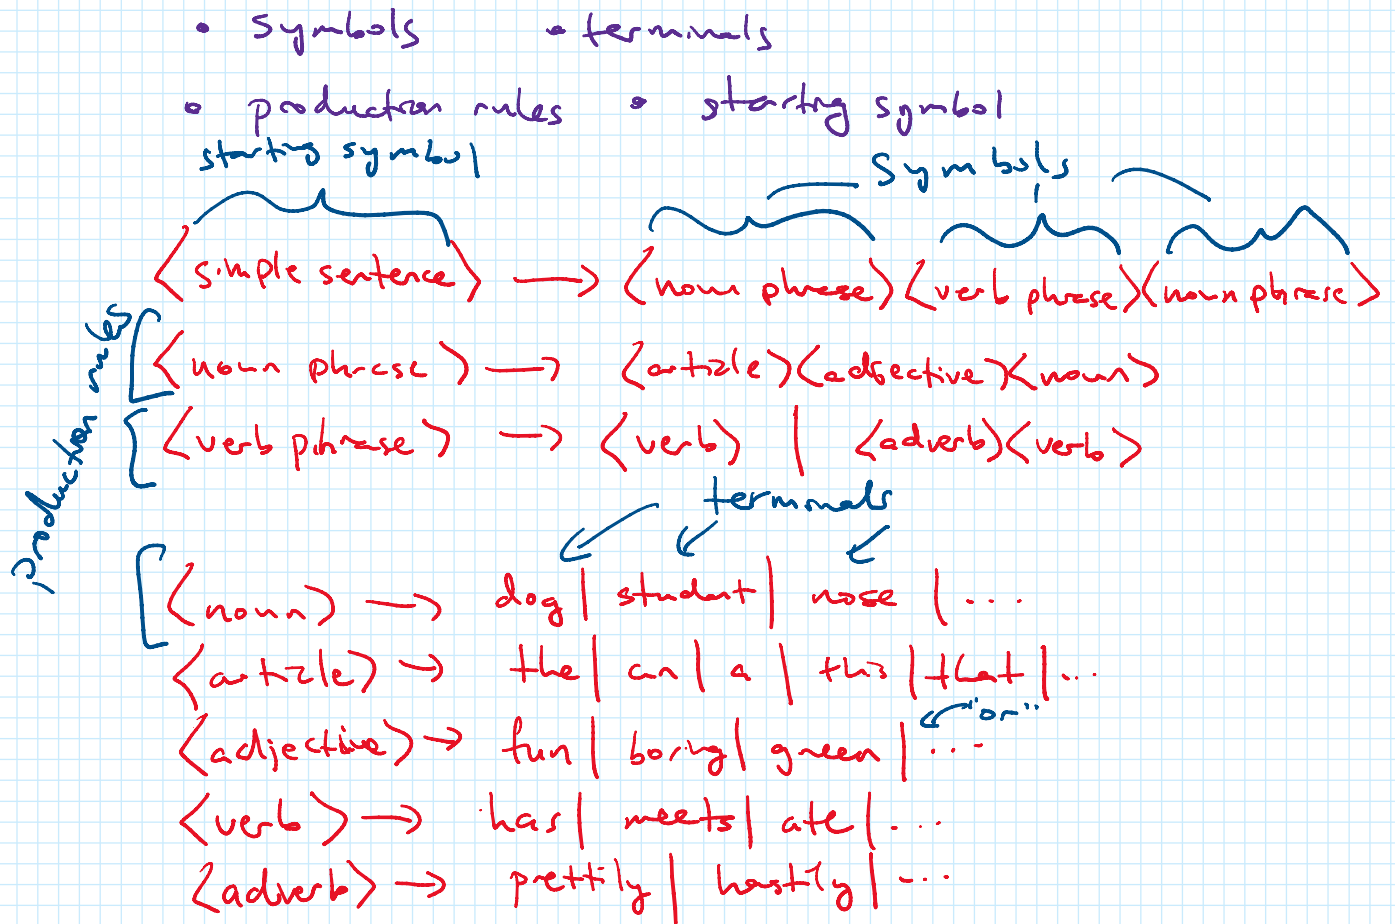 • symbols • terminals
• production rules • starting symbol
starting symbol symbols
<simple sentence> → <noun phrase><verb phrase><noun phrase>
production rules
<noun phrase> → <article><adjective><noun>
<verb phrase> → <verb> | <adverb><verb>
terminals
<noun> → dog | student | nose | ...
<article> → the | an | a | this | that | ...
"or"
<adjective> → fun | boring | green | ...
<verb> → has | meets | ate | ...
<adverb> → prettily | hastily | ...